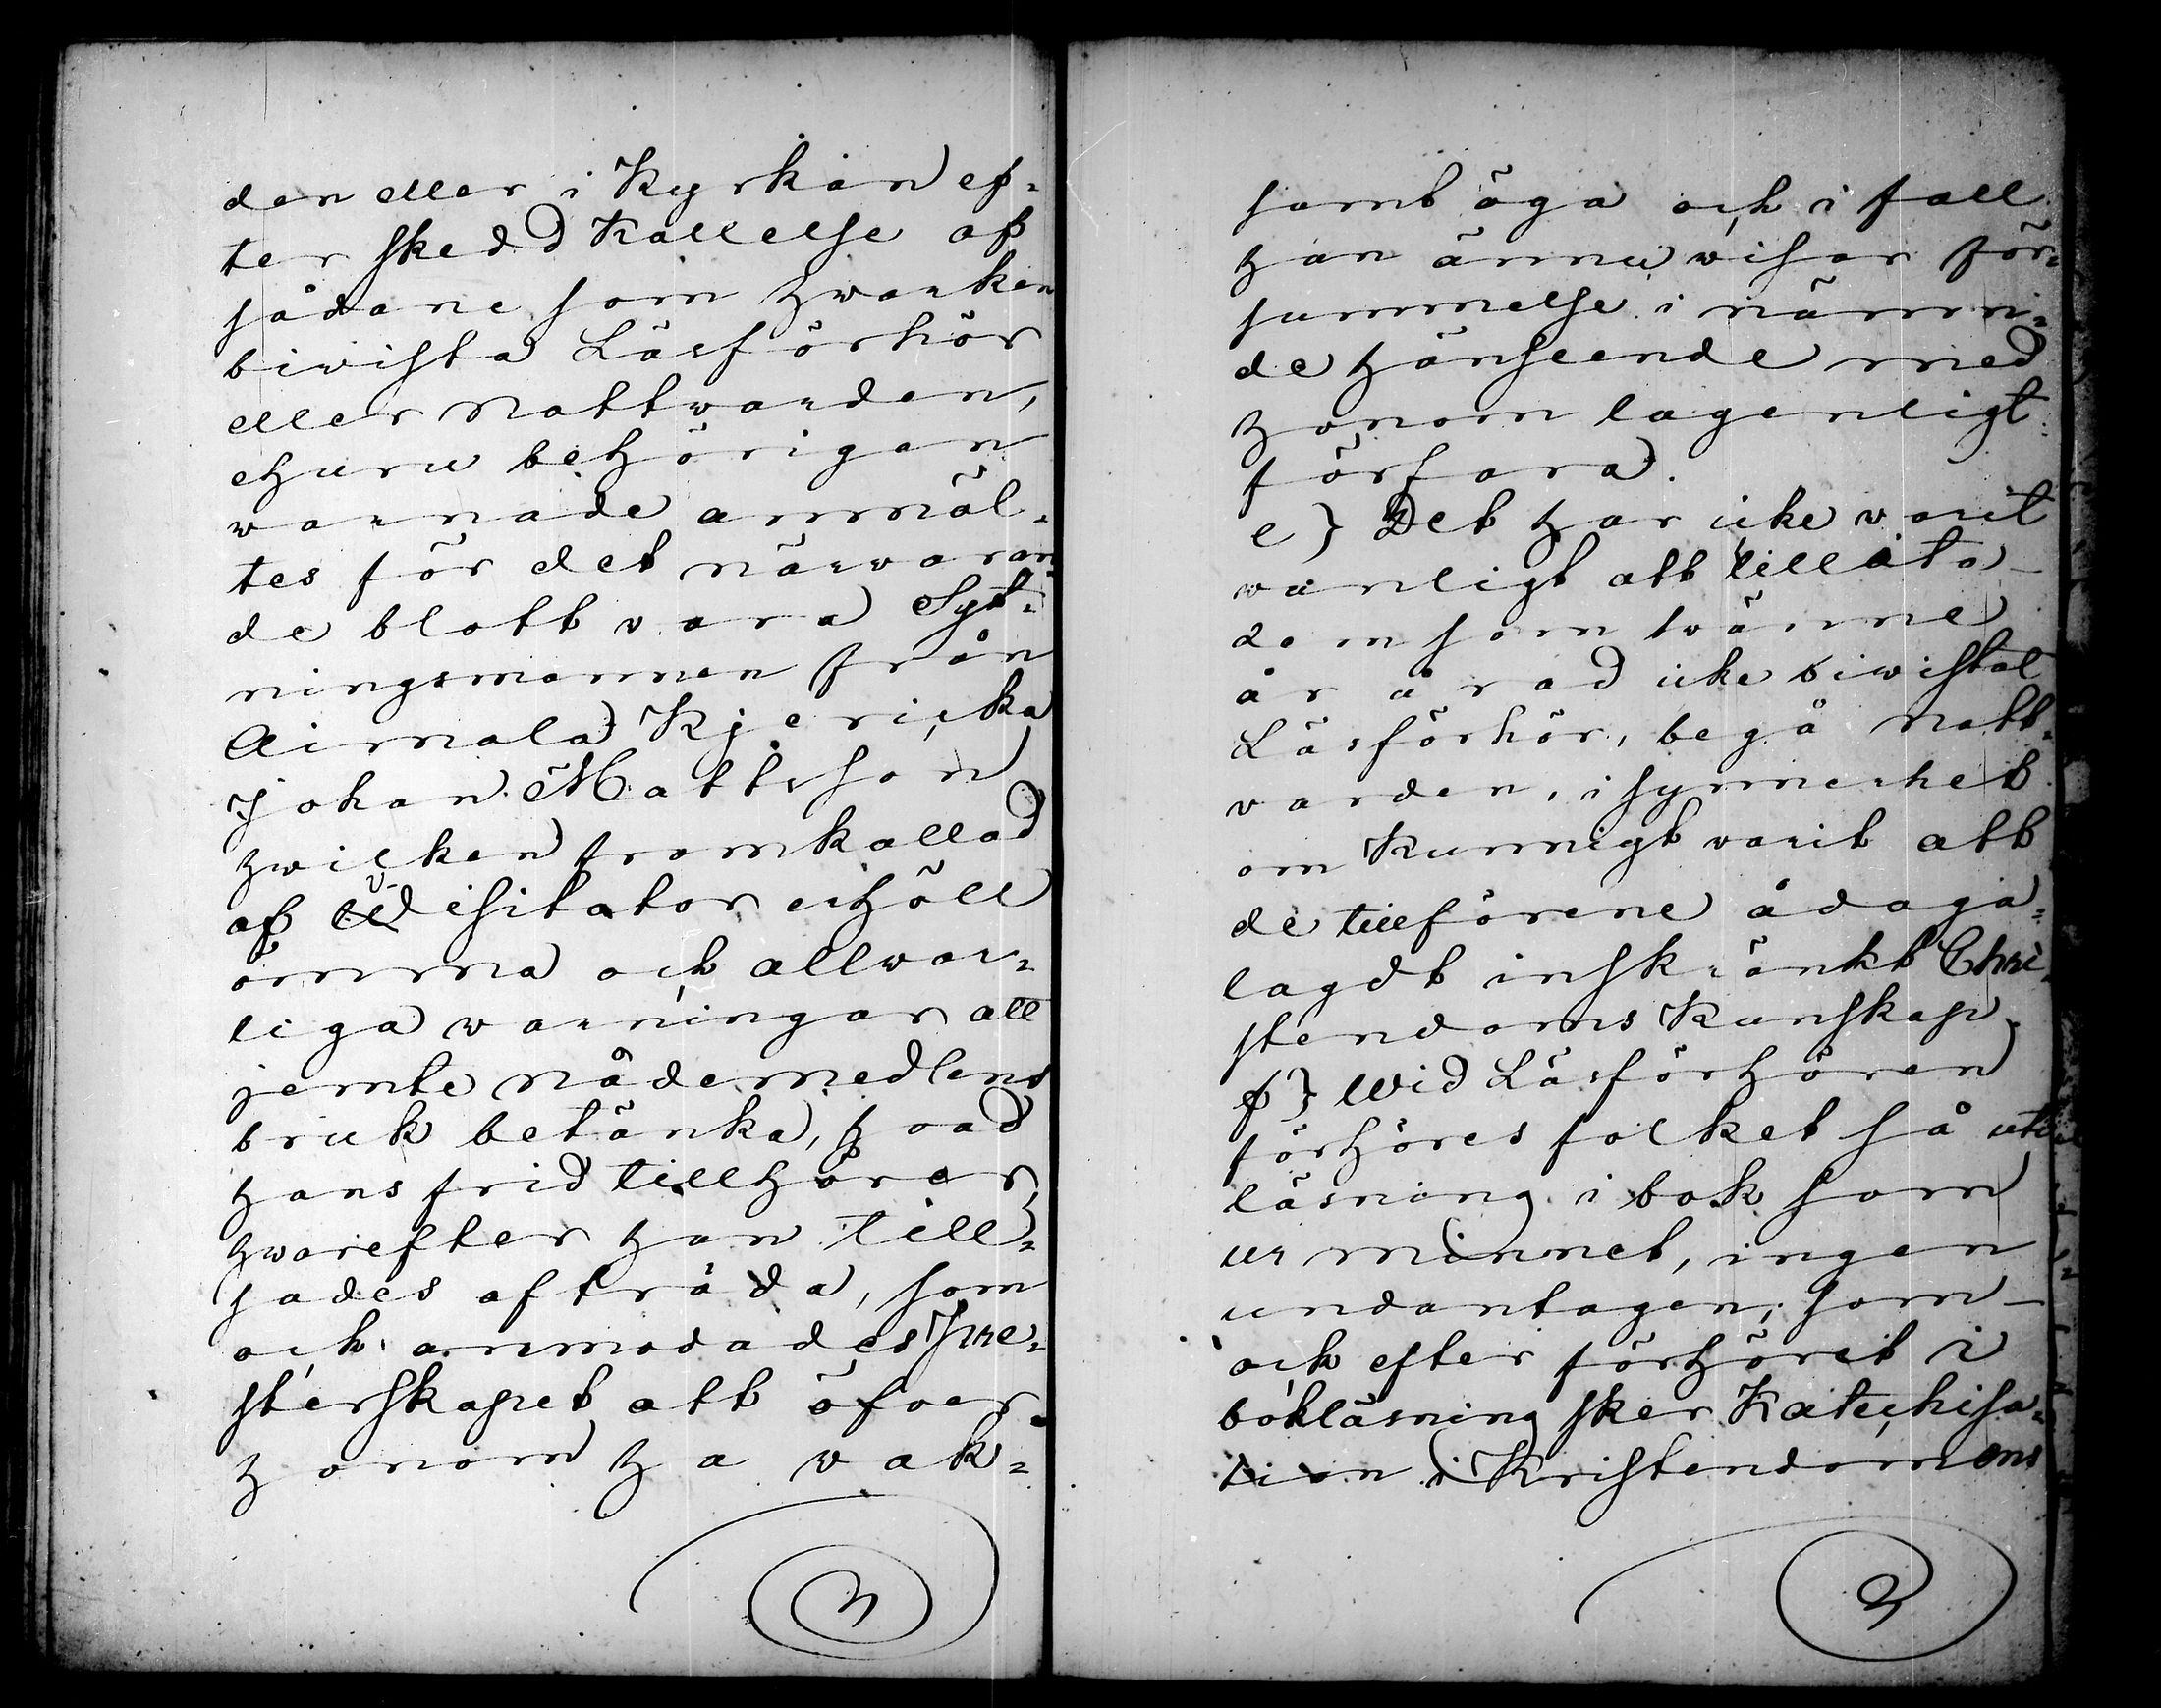 den eller i Kyrkan ef=
ter skedd Kallelse af
sådane som hwarken
biwista Läsförhör
eller Nattwarden,
ehuru behörigen
warnade anmäl=
tes för det närwaran=
de blott vara Syt=
ningsmannen från
Aimala Kjericka
Johan Mattsson
hwilken framkallad
af Visitator erhöll
ömma och allwar=
liga warningar att
jemte nådemedlens
bruk betänka, hvad
hans frid tillhörer,
hwarefter han till=
sades afträda, som
ock anmodades Pre=
sterskapet att öfver
honom ha vak=
samt öga och i fall
han ännu wisar för=
summelse i nämn=
de hänseende med
honom lagenligt
förfara.
e) Det har icke varit
vanligt att tillåta
dem som tvänne
år å rad icke biwistat
Läsförhör, begå Natt=
varden, i synnerhet
om Kunnigt varit att
de tillförene ådaga=
lagdt inskränkt Chri=
stendoms Kunskap.
f) Wid Läsförhören
förhöres folket så uti
läsning i bok som
ur minnet, ingen
undantagen, som
ock efter förhöret i
bokläsning sker Katechisa=
tion i Kristendomens